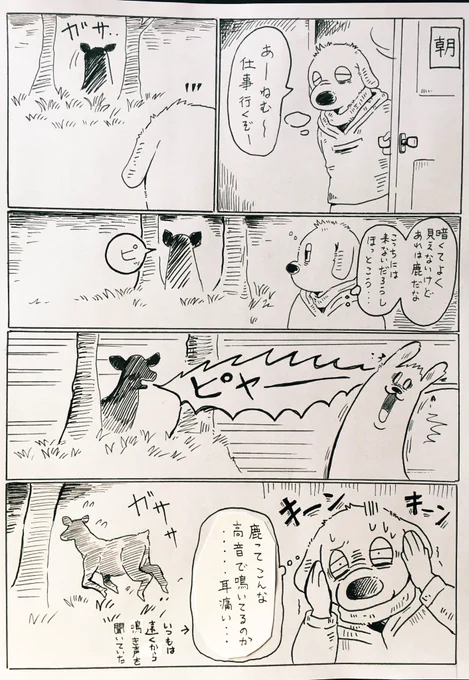 朝
あーねむ〜
仕事行くぞー
ガサ‥
暗くてよく
見えないけど
あれは鹿だな
こっちには
来ないだろうし
ほっとこう・・・
ピャー
キーン
キーン
鹿ってこんな
高音で鳴いてるのか
・・・・・・耳痛い・・・
ガササ
いつもは
遠くから
鳴き声を
聞いていた